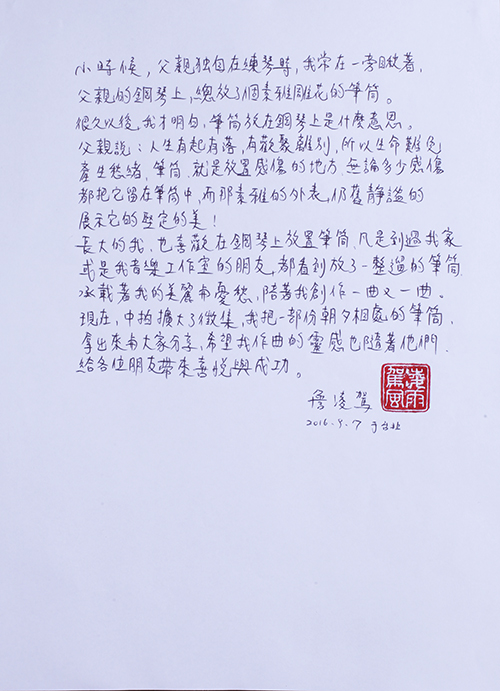 小時候，父親独自在練琴時，我常在一旁欣著，
父親的鋼琴上，總放了個素雅雕花的筆筒。
很久以後，我才明白，筆筒放在鋼琴上是什麼意思。
父親說：人生有起有落，有歡聚離別，所以生命難免
產生愁緒，筆筒，就是放置感傷的地方，無論多少感傷
都把它留在筆筒中，而那素雅的外表，仍舊靜謐的
展示它的堅定的美！
長大的我，也喜歡在鋼琴上放置筆筒，凡是到過我家
或是我音樂工作室的朋友，都看到放了一整遛的筆筒
承載著我的美麗和憂愁，陪著我創作一曲又一曲。
現在，中拍擴大了徵集，我把一部份朝夕相處的筆筒，
拿出來和大家分享，希望我作曲的靈感也隨著他們，
給各位朋友帶來喜悅與成功。
凌駕
2016.4.7 于台北